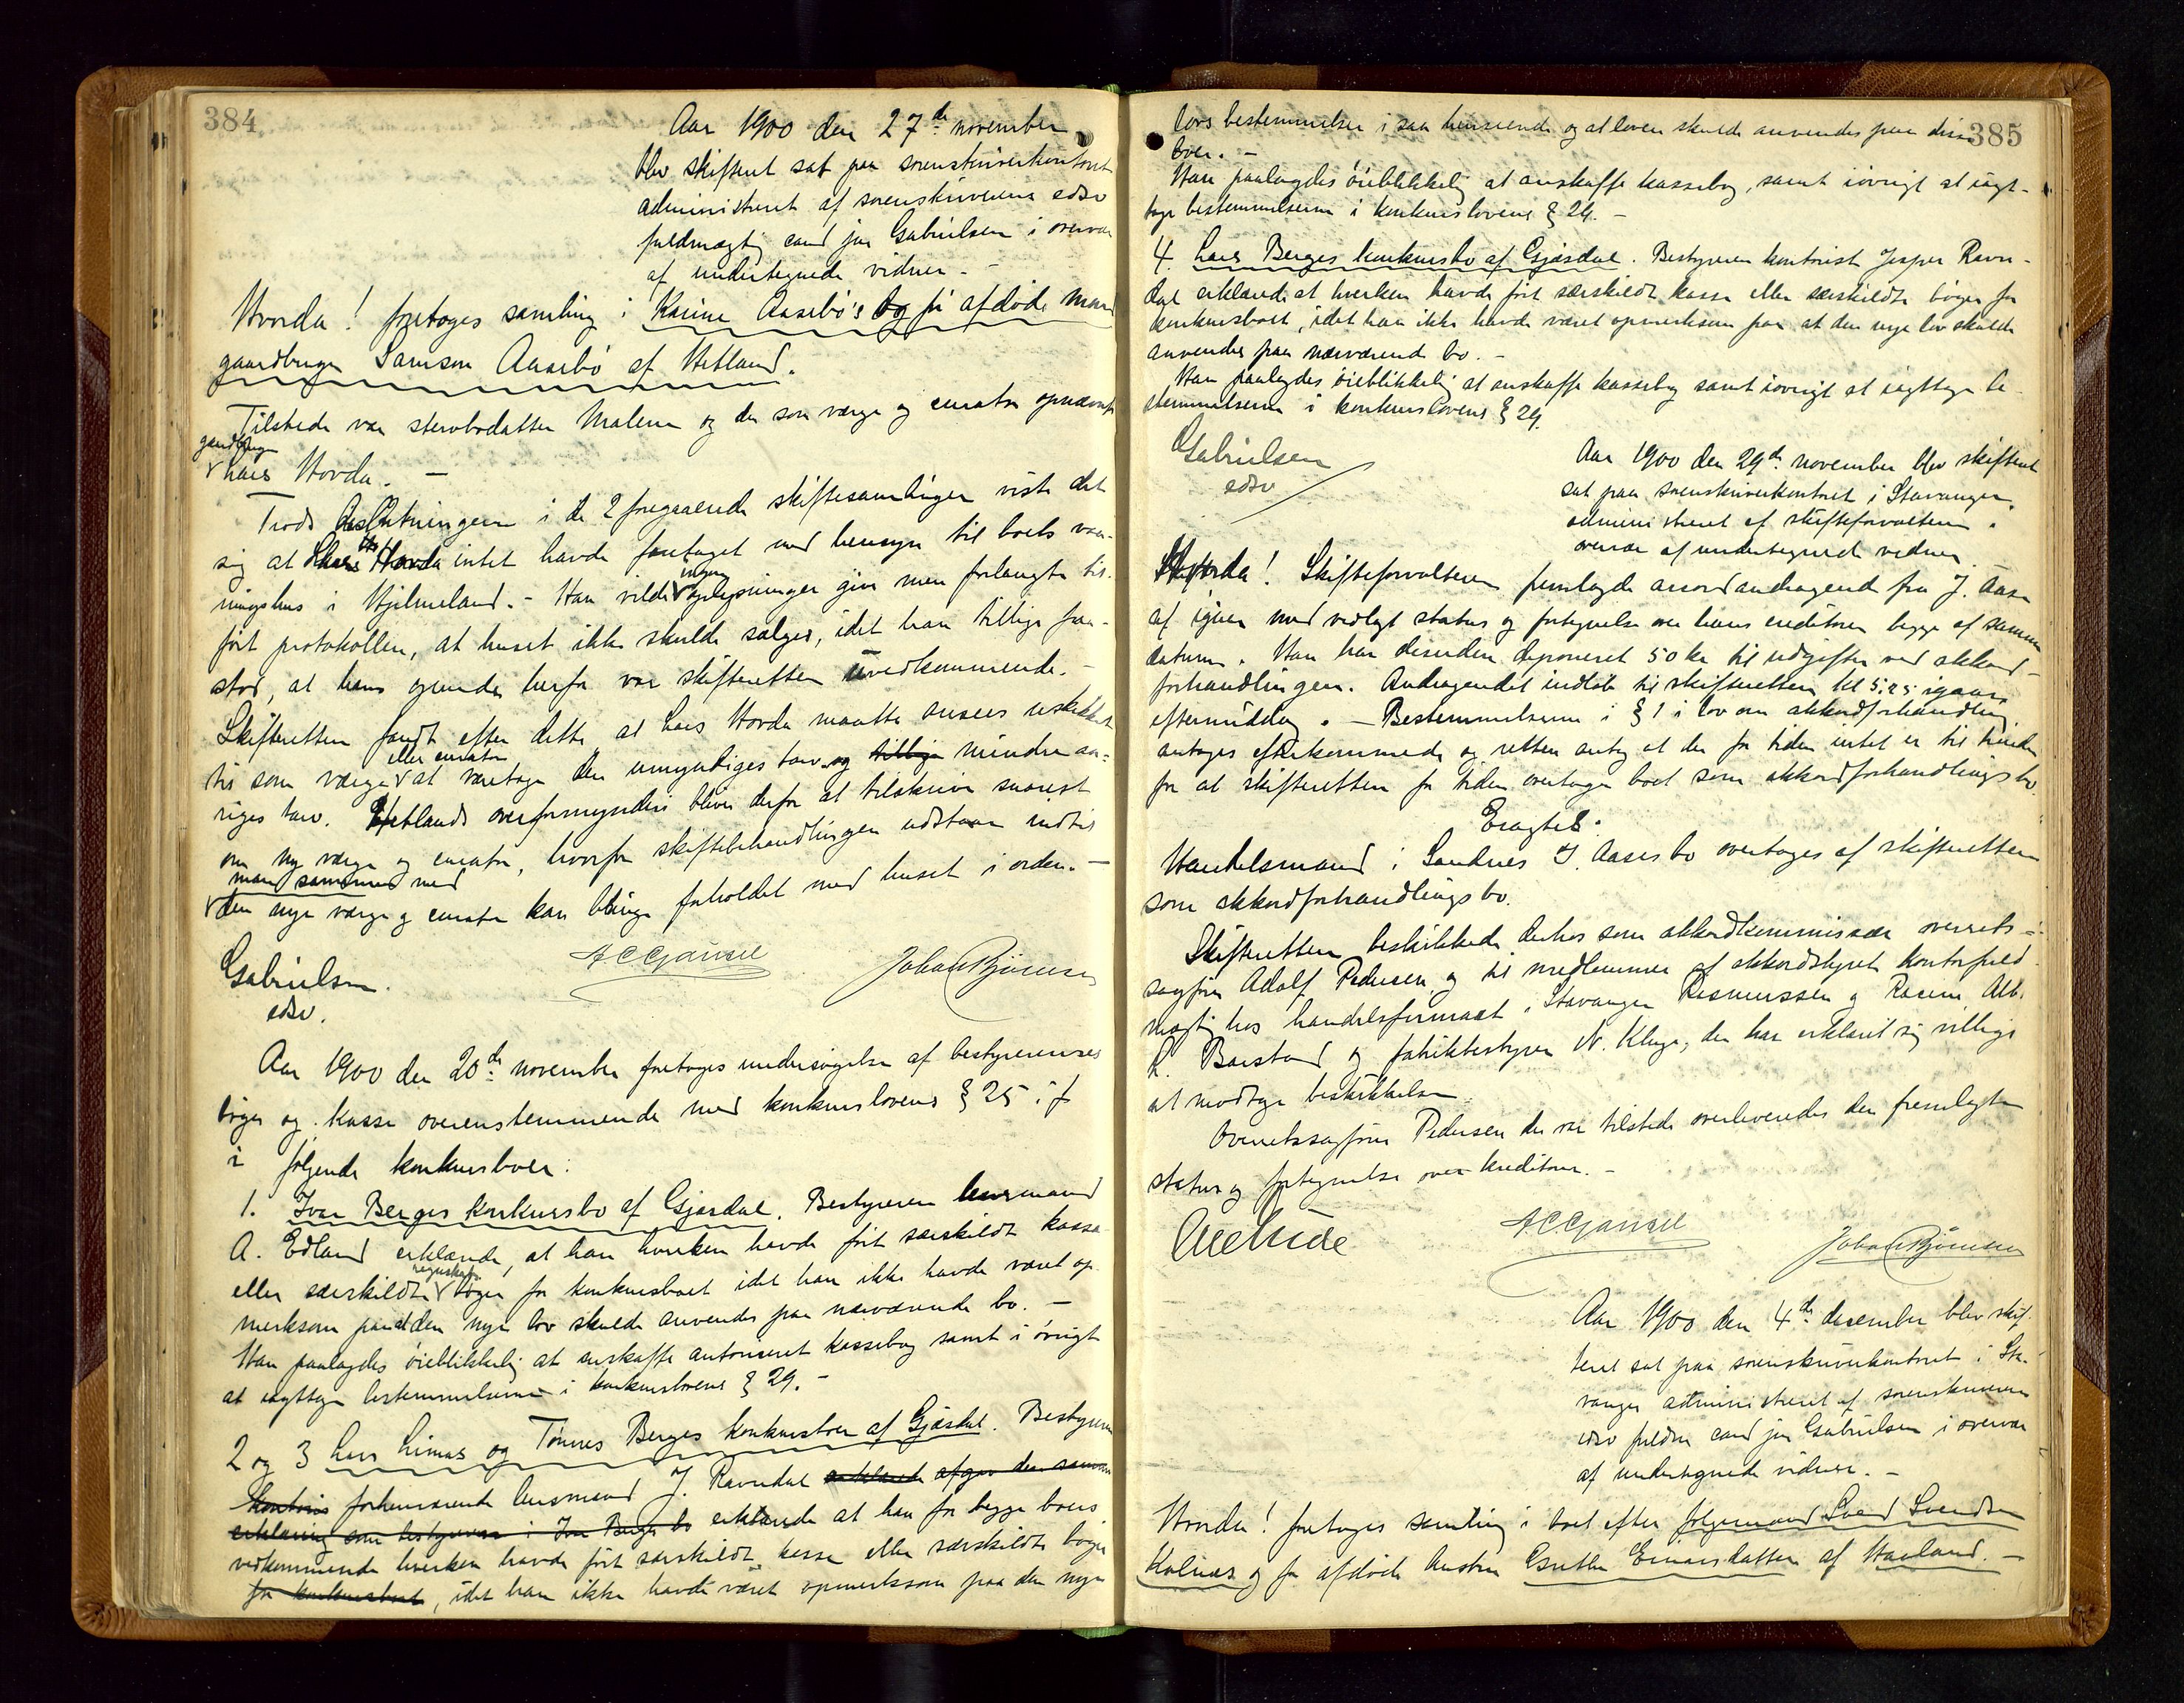 384
Aar 1900 den 27de november
blev skifteret sat paa sorenskriverkontoret
administreret af sorenskriverens edsv
fuldmægtig cand jur Gabrielsen i overvær
af undertegnede vidner. –
Hvorda! foretoges samling i Karine Aasebø's bo fra afdøde mand
gaardbruger Samson Aasebø af Hetland.
Tilstede var stervbodatter Malene og den som værge og curator opnævnte
gaardbruger
Lars Hovda. –
Trods i de 2 foregaaende skiftesamlinger viste det
sig at Lars Hovda intet havde foretaget med hensyn til boets vaa-
ningshus i Hjelmeland. – Han vilde ingen oplysninger give men forlangte til-
ført protokollen, at huset ikke skulde sælges, idet han tillige frem-
stod, at hans grunde herfor var skifteretten uvedkommende. –
Skifteretten fandt efter dette at Lars Hovda maatte ansees uskikket
eller curator
til som værge at varetage den umyndiges tarv og tillige mindreaa-
riges tarv. Hetlands overformynderi bliver derfor at tilskrive snarest
om ny værge og curator, hvorfor skiftebehandlingen udstaar indtil
man sammen med
den nye værge og curator kan bringe forholdet med huset i orden. –
Gabrielsen
edsv.
A C Gjausel
Johan Bjørnsen
Aar 1900 den 28de november foretoges undersøgelse af bestyrerens
bøger og kasse overensstemmende med konkurslovens § 25 i f
i følgende konkursboer:
1. Ivar Berges konkursbo af Gjæsdal. Bestyreren lensmand
A. Edland erklærede, at han hverken havde ført særskildt kasse
regnskabs
eller særskildte bøger for konkursboet idet han ikke havde været op-
merksom paa at den nye lov skulde anvendes paa nærværende bo. –
Han paalagdes øieblikkelig at anskaffe autoriseret kassebog samt i øvrigt
at iagttage bestemmelserne i konkurslovens § 29. –
2 og 3 Lars Limas og Tønnes Berges konkursboer af Gjæsdal. Bestyreren
forhenværende lensmand J. Ravndal erklærede afgav den samme
erklæring som bestyreren i Ivar Berges bo erklærede at han for begge boers
vedkommende hverken havde ført særskildt kasse eller særskildte bøger
for konkursboet, idet han ikke havde været opmerksom paa den nye
385
lovs bestemmelser i saa henseende og at loven skulde anvendes paa disse
boer. –
Han paalagdes øieblikkelig at anskaffe kassebog, samt iøvrigt at iagt-
tage bestemmelserne i konkurslovens § 29. –
4. Lars Berges konkursbo af Gjæsdal. Bestyreren kontorist Jesper Ravn-
dal erklærede at hverken havde ført særskildt kasse eller særskildte bøger for
konkursboet, idet han ikke havde været opmerksom paa at den nye lov skulde
anvendes paa nærværende bo. –
Han paalagdes øieblikkelig at anskaffe kassebog samt iøvrigt at iagttage be-
stemmelserne i konkurslovens § 29.
Gabrielsen
edsv
Aar 1900 den 29de november blev skifteret
sat paa sorenskriverkontoret i Stavanger
administreret af skifteforvalteren i
overvær af undertegnede vidner
Hvorda! Skifteforvalteren fremlagde accordandragende fra J. Aase
af igaar med vedlagt status og fortegnelse over hans creditorer begge af samme
datum. Han har desuden deponeret 50 kr til udgifter ved akkord-
forhandlingen. Andragendet indløb til skifteretten kl 5.25 igaar
eftermiddag. – Bestemmelserne i § 1 i lov om akkordforhandling
antages efterkommede og retten antog at der for tiden intet er til hinder
for at skifteretten for tiden overtager boet som akkordforhandlingsbo.
Eragtet:
Handelsmand i Sandnes J. Aases bo overtages af skifteretten
som akkordforhandlingsbo.
Skifteretten beskikkede derhos som akkordkommissær overrets-
sagfører Adolf Pedersen og til medlemmer af akkordstyret kontorfuld-
mægtig hos handelsfirmaet i Stavanger Rasmussen & Racine Alb.
R. Barstad og fabrikbestyrer N. Kluge, der har erklæret sig villige
at modtage beskikkelsen.
Overretssagfører Pedersen der var tilstede overleveredes den fremlagte
status og fortegnelse over kreditorer. –
A C Gjausel
Johan Bjørnsen
Aar 1900 den 4de december blev skif-
teret sat paa sorenskriverkontoret i Sta-
vanger administreret af sorenskriverens
edsv fuldm cand jur Gabrielsen i overvær
af undertegnede vidner. –
Hvorda! foretoges samling i boet efter følgemand Svend Svendsen
Kalnæs og før afdøde hustru Gurthe Einarsdatter af Høiland. –